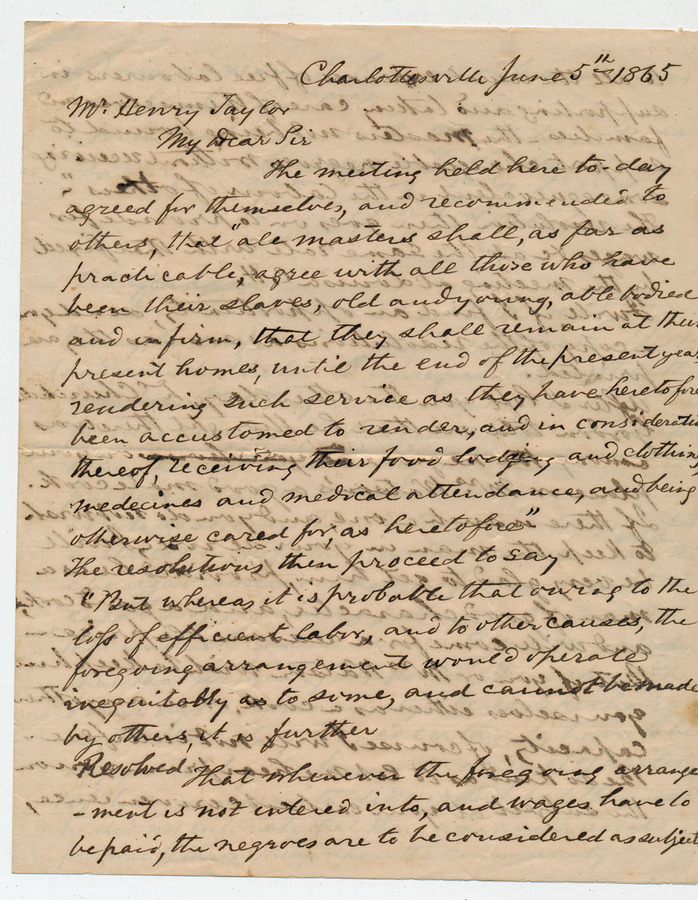 Charlottesville June 5th 1865
Mr. Henry Taylor
My Dear Sir
The meeting held here to-day
agreed for themselves, and recommended to
others, that "all masters shall, as far as
practicable, agree with all those who have
been their slaves, old and young, able bodied
and infirm, that they shall remain at their
present homes, until the end of the present year
rendering such service as they have heretofore
been accustomed to render, and in consideratio
thereof, receiving their food lodging and clothing
medecines and medical attendance, and being
otherwise cared for, as heretofore"
The resolutions then proceed to say
"But whereas it is probable that owing to the
loss of efficient labor, and to other causes, the
foregoing arrangement would operate
inequitably as to some, and cannot be made
by others, it is further
Resolved That whenever the foregoing arrange
-ment is not entered into, and wages have to
be paid, the negroes are to be considered as subject